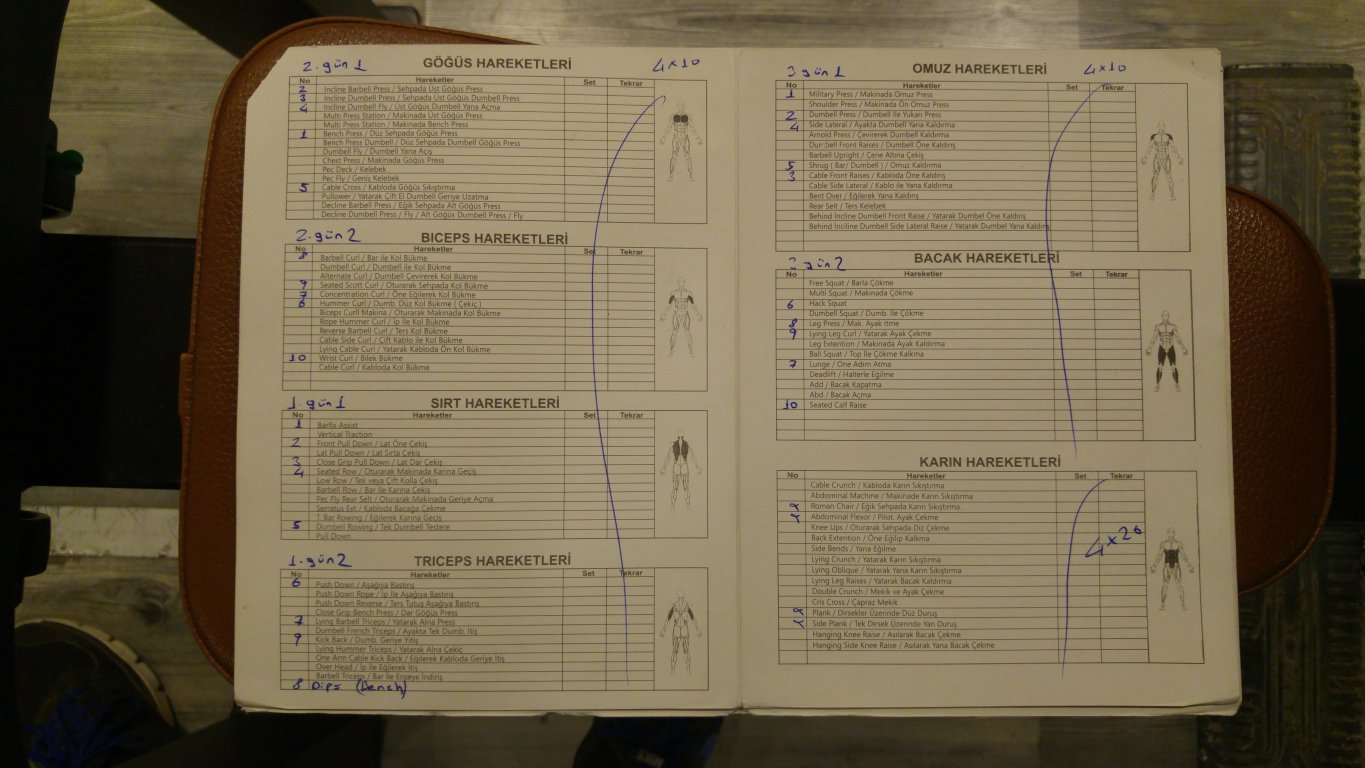 2. gün 1 GÖĞÜS HAREKETLERİ 4x10
No Hareketler Set Tekrar
2 Incline Barbell Press / Sehpada Üst Göğüs Press
3 Incline Dumbell Press / Sehpada Üst Göğüs Dumbell Press
4 Incline Dumbell Fly / Üst Göğüs Dumbell Yana Açma
Multi Press Station / Makinada Üst Göğüs Press
Multi Press Station / Makinada Bench Press
1 Bench Press / Düz Sehpada Göğüs Press
Bench Press Dumbell / Düz Sehpada Dumbell Göğüs Press
Dumbell Fly / Dumbell Yana Açış
Chest Press / Makinada Göğüs Press
Pec Deck / Kelebek
Pec Fly / Geniş Kelebek
5 Cable Cross / Kabloda Göğüs Sıkıştırma
Pullower / Yatarak Çift El Dumbell Geriye Uzatma
Decline Barbell Press / Eğik Sehpada Alt Göğüs Press
Decline Dumbell Press / Fly / Alt Göğüs Dumbell Press / Fly
2. gün 2 BICEPS HAREKETLERİ
No Hareketler Set Tekrar
8 Barbell Curl / Bar ile Kol Bükme
Dumbell Curl / Dumbell ile Kol Bükme
Alternate Curl / Dumbell Çevirerek Kol Bükme
9 Seated Scott Curl / Oturarak Sehpada Kol Bükme
7 Concentration Curl / Öne Eğilerek Kol Bükme
6 Hummer Curl / Dumb. Düz Kol Bükme ( Çekiç )
Biceps Curll Makina / Oturarak Makinada Kol Bükme
Rope Hummer Curl / İp İle Kol Bükme
Reverse Barbell Curl / Ters Kol Bükme
Cable Side Curl / Çift Kablo ile Kol Bükme
Lying Cable Curl / Yatarak Kabloda Ön Kol Bükme
10 Wrist Curl / Bilek Bükme
Cable Curl / Kabloda Kol Bükme
1. gün 1 SIRT HAREKETLERİ
No Hareketler Set Tekrar
1 Barfix Assist
Vertical Traction
2 Front Pull Down / Lat Öne Çekiş
Lat Pull Down / Lat Sırta Çekiş
3 Close Grip Pull Down / Lat Dar Çekiş
4 Seated Row / Oturarak Makinada Karına Geçiş
Low Row / Tek veya Çift Kolla Çekiş
Barbell Row / Bar İle Karına Çekiş
Pec Fly Rear Selt / Oturarak Makinada Geriye Açma
Serratus Ext / Kabloda Bacağa Çekme
T. Bar Rowing / Eğilerek Karına Geçiş
5 Dumbell Rowing / Tek Dumbell Testere
Pull Down
1. gün 2 TRICEPS HAREKETLERİ
No Hareketler Set Tekrar
6 Push Down / Aşağıya Bastırış
Push Down Rope / İp İle Aşağıya Bastırış
Push Down Reverse / Ters Tutuş Aşağıya Bastırış
Close Grip Bench Press / Dar Göğüs Press
7 Lying Barbell Triceps / Yatarak Alna Press
Dumbell French Triceps / Ayakta Tek Dumb. İtiş
9 Kick Back / Dumb. Geriye Yitiş
Lying Hummer Triceps / Yatarak Alna Çekiç
One Arm Cable Kick Back / Eğilerek Kabloda Geriye İtiş
Over Head / İp İle Eğilerek İtiş
Barbell Triceps / Bar İle Enseye İndiriş
8 Dips (Bench)
3 gün 1 OMUZ HAREKETLERİ 4x10
No Hareketler Set Tekrar
1 Military Press / Makinada Omuz Press
Shoulder Press / Makinada Ön Omuz Press
2 Dumbell Press / Dumbell İle Yukarı Press
4 Side Lateral / Ayakta Dumbell Yana Kaldırma
Arnold Press / Çevirerek Dumbell Kaldırma
Dumbell Front Raises / Dumbell Öne Kaldırış
Barbell Upright / Çene Altına Çekiş
5 Shrug ( Bar/ Dumbell ) / Omuz Kaldırma
3 Cable Front Raises / Kabloda Öne Kaldırış
Cable Side Lateral / Kablo ile Yana Kaldırma
Bent Over / Eğilerek Yana Kaldırış
Rear Selt / Ters Kelebek
Behind Incline Dumbell Front Raise / Yatarak Dumbel Öne Kaldırış
Behind Incline Dumbell Side Lateral Raise / Yatarak Dumbel Yana Kaldırış
3 gün 2 BACAK HAREKETLERİ
No Hareketler Set Tekrar
Free Squat / Barla Çökme
Multi Squat / Makinada Çökme
6 Hack Squat
Dumbell Squat / Dumb. İle Çökme
8 Leg Press / Mak. Ayak İtme
9 Lying Leg Curl / Yatarak Ayak Çekme
Leg Extention / Makinada Ayak Kaldırma
Ball Squat / Top İle Çökme Kalkma
7 Lunge / Öne Adım Atma
Deadlift / Halterle Eğilme
Add / Bacak Kapatma
Abd / Bacak Açma
10 Seated Calf Raise
KARIN HAREKETLERİ
No Hareketler Set Tekrar
Cable Crunch / Kabloda Karın Sıkıştırma
Abdominal Machine / Makinade Karın Sıkıştırma
Roman Chair / Eğik Sehpada Karın Sıkıştırma
Abdominal Flexor / Pilot. Ayak Çekme
Knee Ups / Oturarak Sehpada Diz Çekme
Back Extention / Öne Eğilip Kalkma
4x20
Side Bends / Yana Eğilme
Lying Crunch / Yatarak Karın Sıkıştırma
Lying Oblique / Yatarak Yana Karın Sıkıştırma
Lying Leg Raises / Yatarak Bacak Kaldırma
Double Crunch / Mekik ve Ayak Çekme
Cris Cross / Çapraz Mekik
Plank / Dirsekler Üzerinde Düz Duruş
Side Plank / Tek Dirsek Üzerinde Yan Duruş
Hanging Knee Raise / Asılarak Bacak Çekme
Hanging Side Knee Raise / Asılarak Yana Bacak Çekme